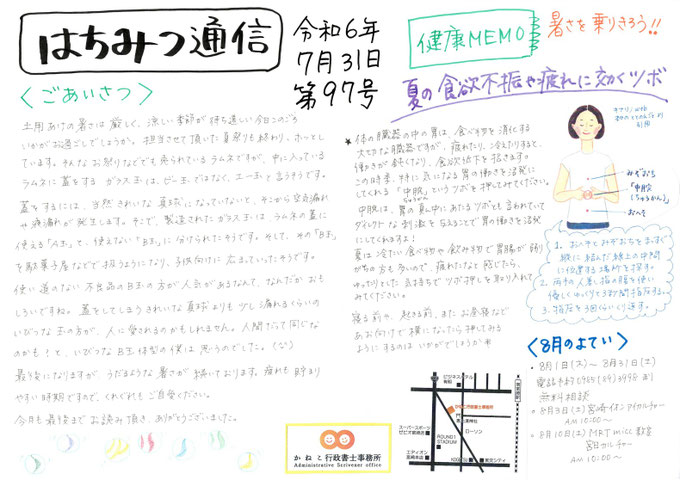 はちみつ通信
令和6年
7月31日
第97号
<ごあいさつ>
土用あけの暑さは厳しく、涼しい季節が待ち遠しい今日このごろ
いかがお過ごしでしょうか。担当させて頂いた夏祭りも終わり、ホッとし
ています。そんなお祭りなどでも売られているラムネですが、中に入っている
ラムネに蓋をするガラス玉は、ビー玉ではなく、エー玉と言うそうです。
蓋をするには、当然きれいな真球になっていないと、そこから空気漏れ
や液漏れが発生します。そこで、製造されたガラス玉は、ラムネの蓋に
使える「A玉」と、使えない「B玉」に分けられたそうです。そして、その「B玉」
を駄菓子屋などで扱うようになり、子供向けに広まっていったそうです。
使い道のない不良品のB玉の方が人気があるなんて、なんだかおも
しろいですね。蓋をしてしまうきれいな真球よりも少し漏れるくらいの
いびつな玉の方が、人に愛されるのかもしれません。人間だって同じな
のかも！と、いびつなB玉体型の僕は思うのでした。(心)
最後になりますが、うだるような暑さが続いております。疲れも貯まり
やすい時期ですので、くれぐれもご自愛ください。
今月も最後までお読み頂き、ありがとうございました。
健康MEMO
暑さを乗りきろう!!
夏の食欲不振や疲れに効くツボ
★体の臓器の中の胃は、食べ物を消化する
大切な臓器ですが、疲れたり、冷えたりすると、
働きが鈍くなり、食欲低下を招きます。
この時季、特に気になる胃の働きを活発に
してくれる「中脘」というツボを押してみてください。
中脘は、胃の真ん中にあたるツボとも言われていて
ダイレクトな刺激を与えることで胃の働きを活発
にしてくれますよ!
夏は冷たい食べ物や飲み物で胃腸が弱り
がちの方も多いので、疲れたなと感じたら、
ゆったりとした気持ちでツボ押しを取り入れて
みてください。
寝る前や、起きる前、またお昼寝など
あお向けで横になったら押してみる
ようにするのはいかがでしょうか
みぞおち
「中脘
(ちゅうかん)」
おへそ
1. おへそとみぞおちをまっすぐ
縦に結んだ線上の中間
に位置する場所を探す。
2. 両手の人差し指の腹を使い
優しくゆっくり3秒間指圧する。
3. 指圧を3回くらいくり返す。
<8月のよてい>
・8月1日(木)〜8月31日(土)
電話予約0985(29)3995 まで
無料相談
・8月3日(土)宮崎イオンアイカルチャー
AM10:00〜
・8月10日(土)MRT micc教室
宮日カルチャー
AM10:00〜
かねこ行政書士事務所
Administrative Scrivener office
ビジネスホテル
かねこ行政書士事務所
スーパースポーツ
ゼビオ宮崎店
ローソン
ROUND1
STADIUM
エディオン
宮崎本店
東宮シティ